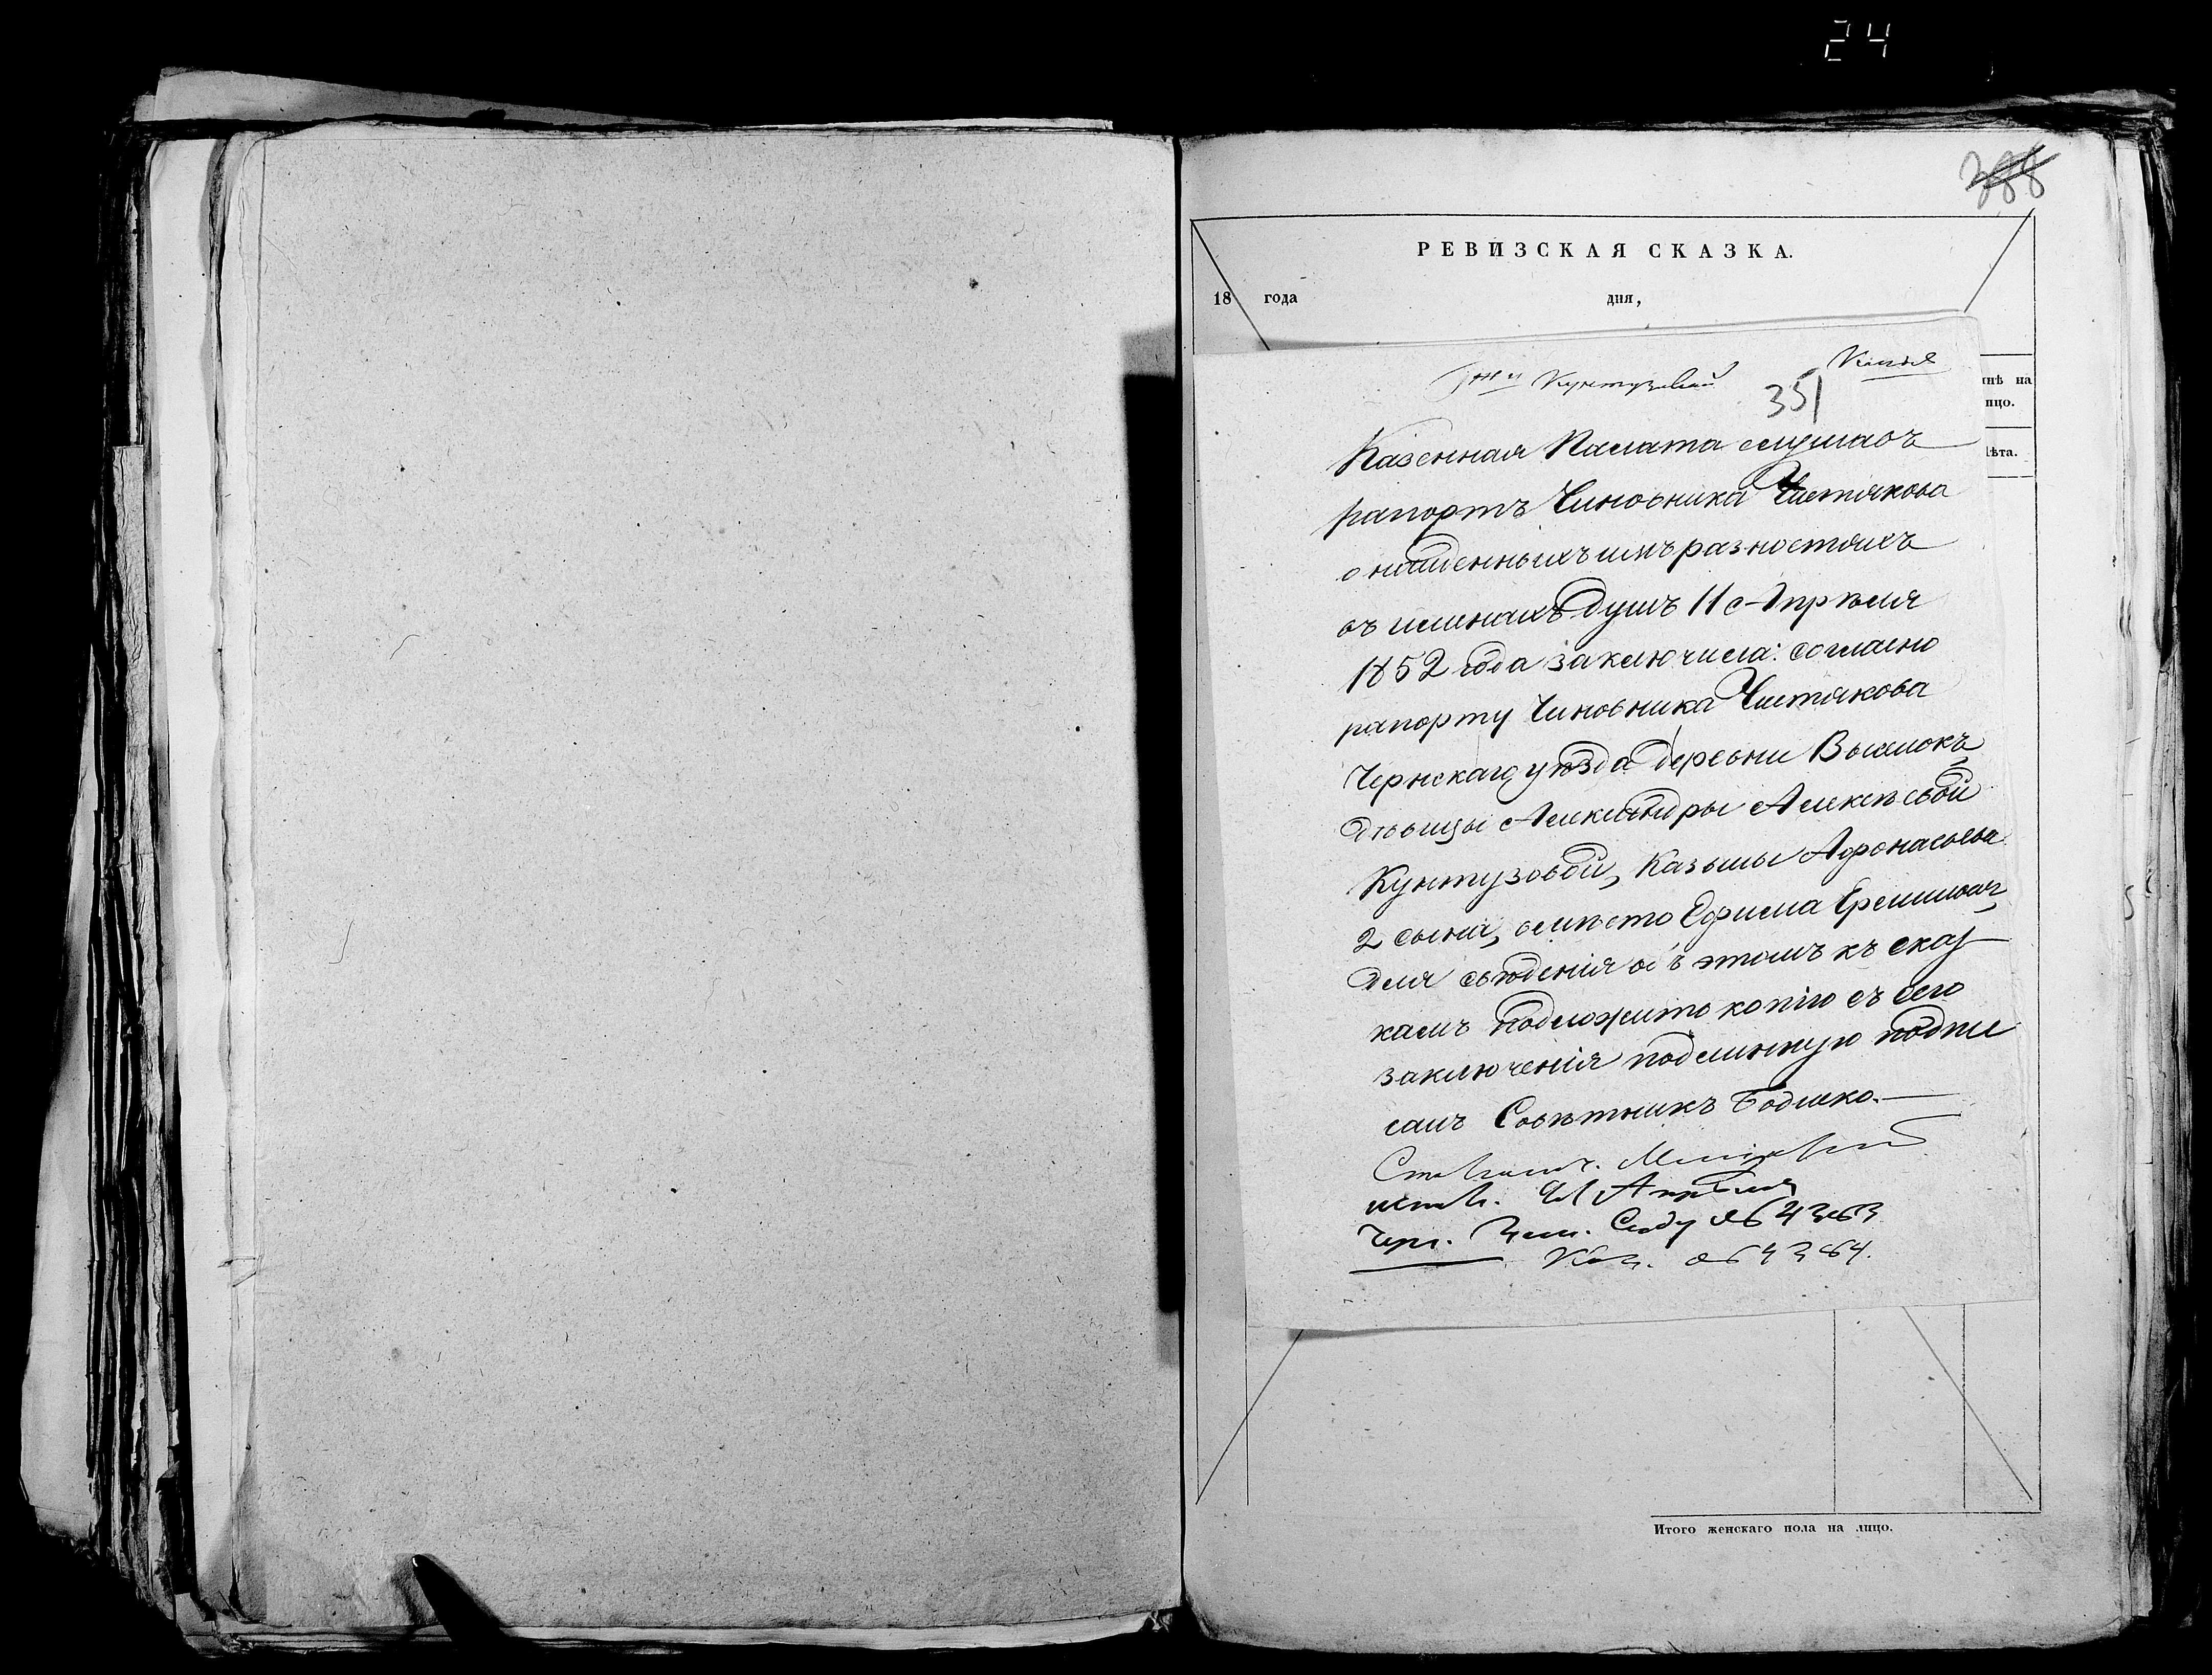 24
388
РЕВИЗСКАЯ СКАЗКА.
18 года дня,
Копія
Г-жи Кунтузовой
351
Казенная Палата слушавъ
рапортъ Чиновника Чистякова
о найденныхъ имъ разностяхъ
въ именахъ душъ 11 Апрѣля
1852 года заключила: согласно
рапорту Чиновника Чистякова
Чернскаго уѣзда деревни Выселокъ
дѣвицы Александры Алексѣевой
Кунтузовой, Казьмы Афонасьева
2 сына, вмѣсто Ефима Еремиемъ,
для свѣденія объ этомъ къ сказ
камъ подложить копію съ сего
заключенія подлинную подпи
салъ Совѣтникъ Бодиско.
Столонач.
исполн. 21 Апрѣля
Черн. Зем. Суду № 4363
Каз. № 4364.
нѣ на
лицо.
Лѣта.
Итого женскаго пола на лицо.